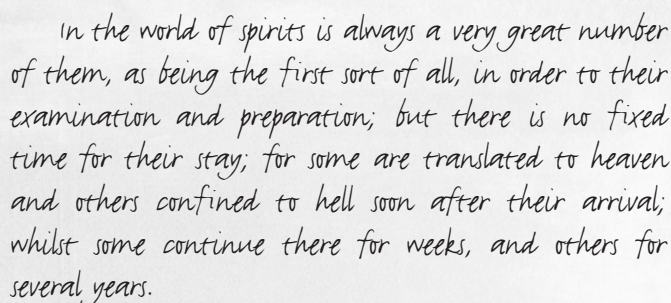 In the world of spirits is always a very great number
of them, as being the first sort of all, in order to their
examination and preparation; but there is no fixed
time for their stay; for some are translated to heaven
and others confined to hell soon after their arrival;
whilst some continue there for weeks, and others for
several years.